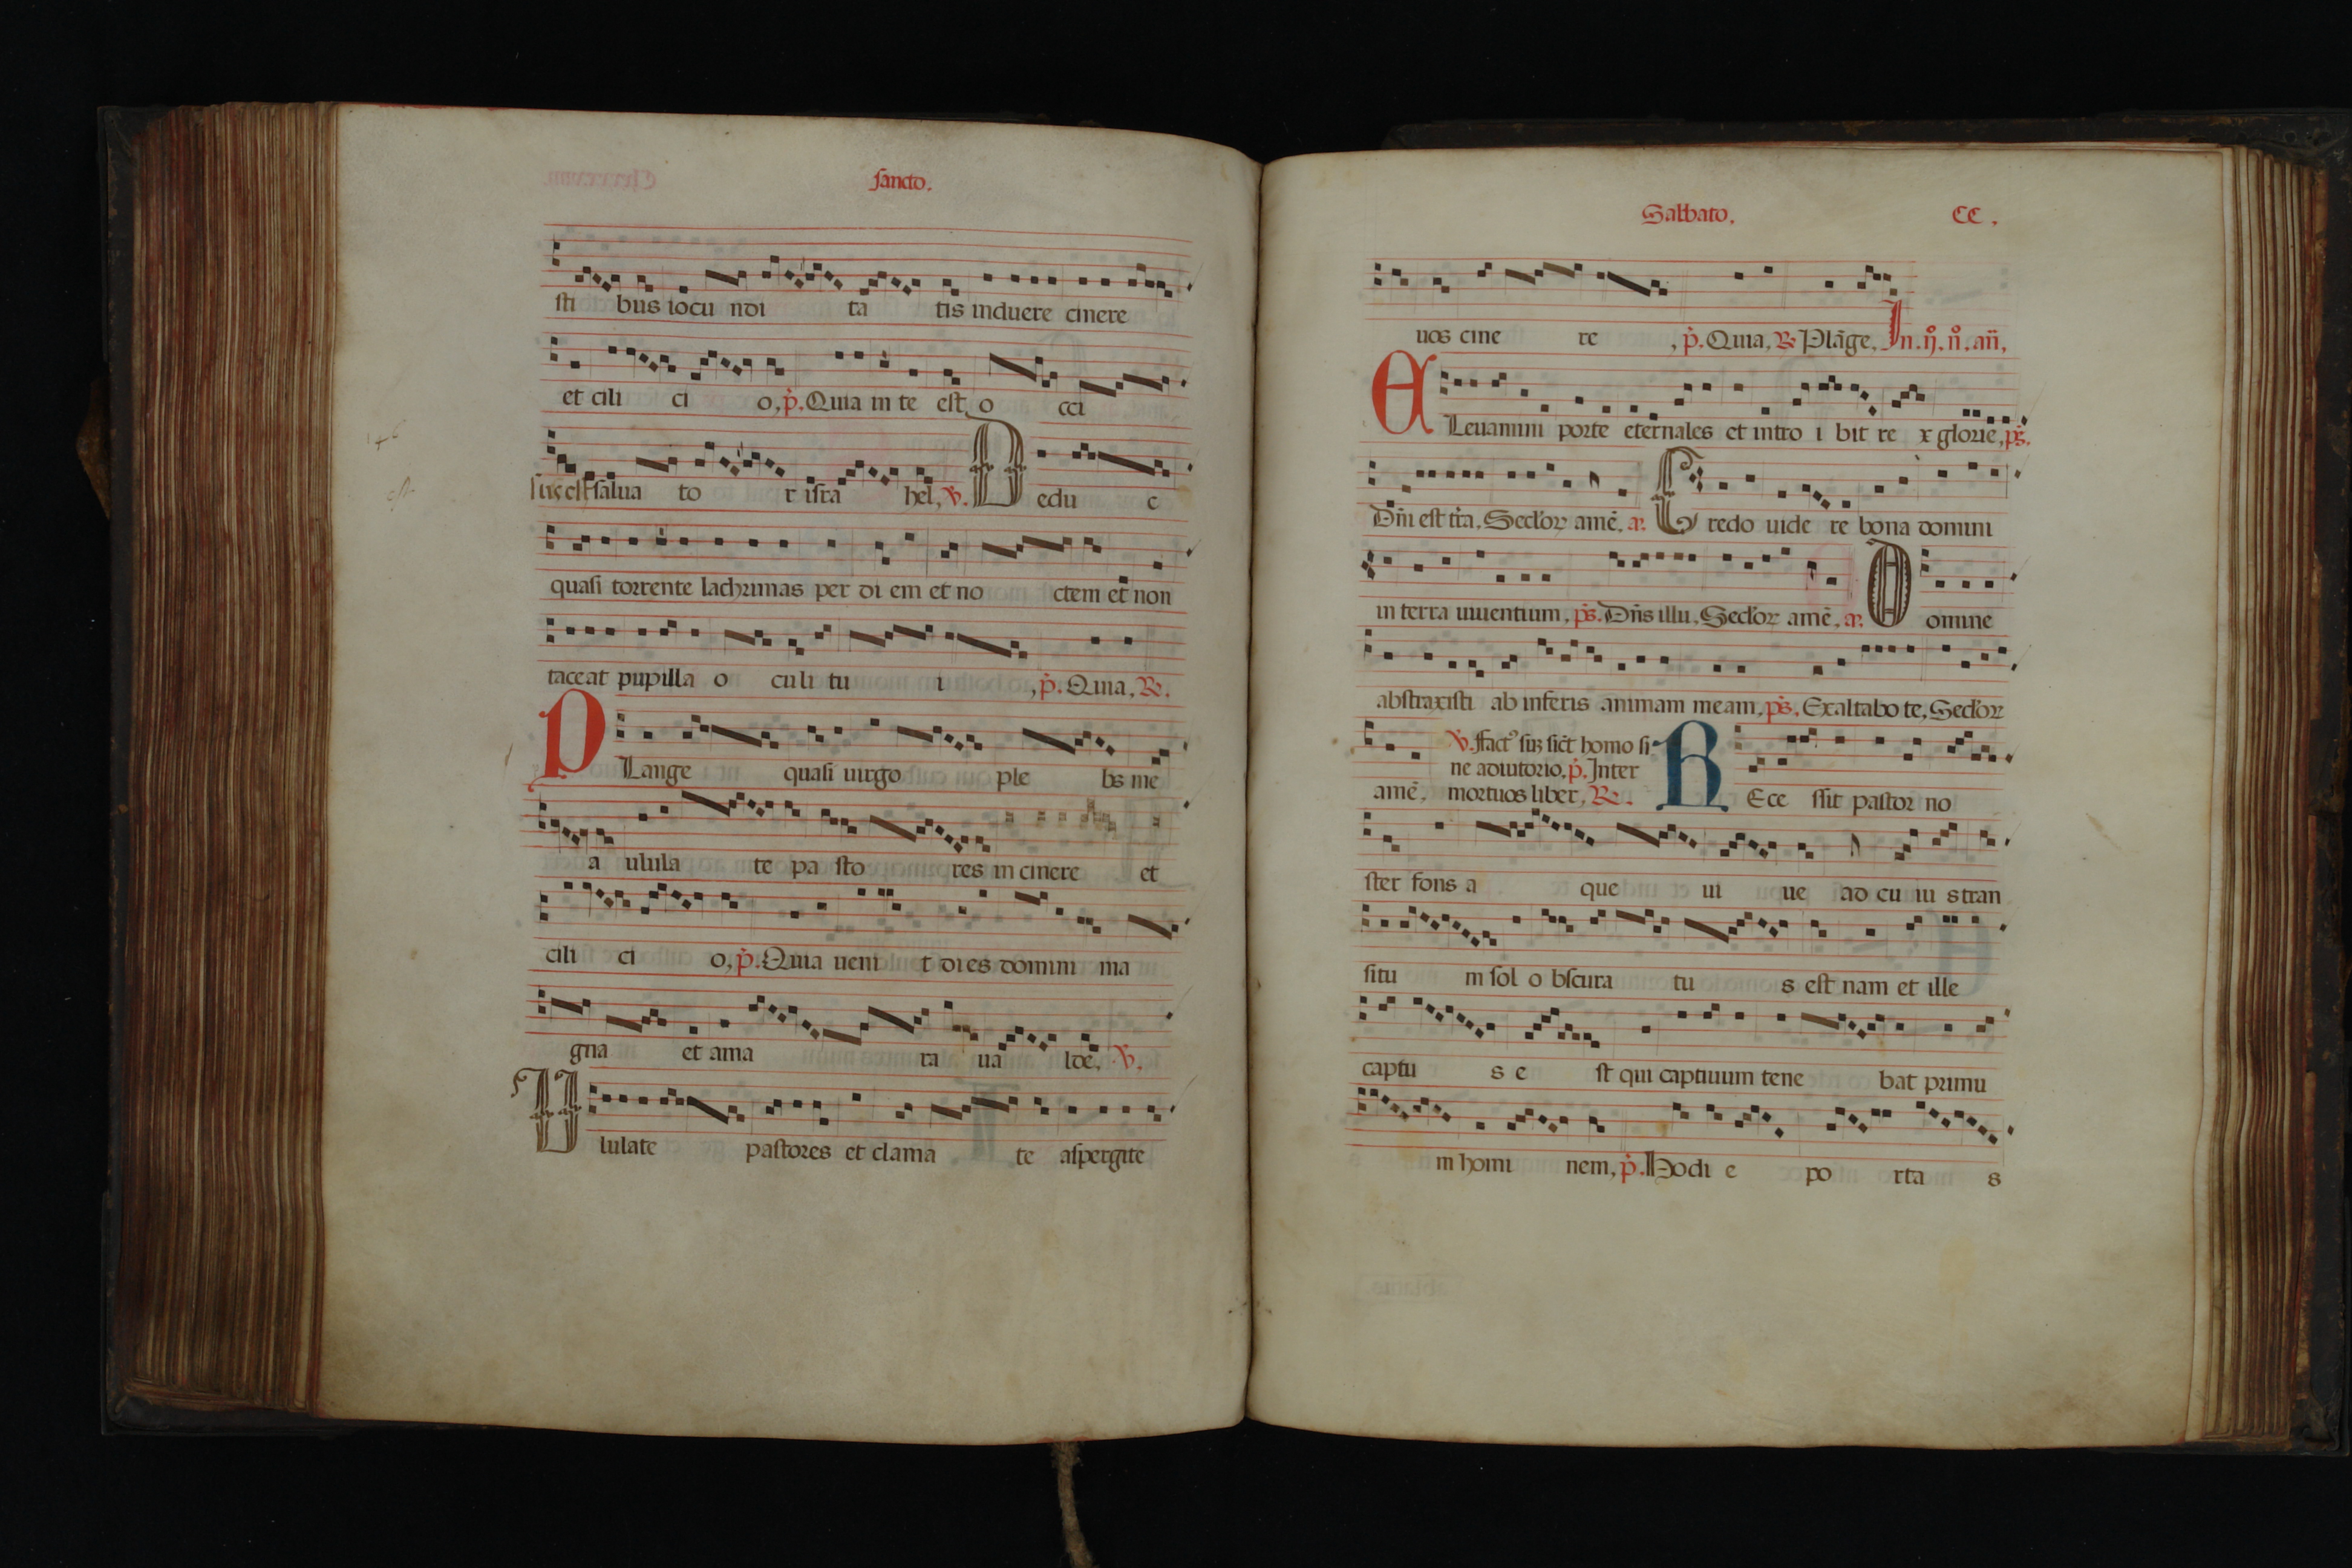 sancto.
sti bus iocu ndi ta tis induere cinere
et cili ci o, p̾. Quia in te est o cci
sus est salua to r isra hel, v̾. Dedu c
quasi torrente lachrimas per di em et no ctem et non
taceat pupilla o culi tu i , p̾. Quia, R̾.
PLange quasi uirgo ple bs me
a ulula te pa sto res in cinere et
cili ci o, p̾. Quia ueni t dies domini ma
gna et ama ra ua lde, v̾.
Ululate pastores et clama te aspergite
Sabbato. CC.
uos cine re , p̾. Quia, R̾ Plāge, In. ij. n̊. añ,
ELeuamini porte eternales et intro i bit re x glorie, ps̄.
Dn̄i est tr̄a, Seclor amē. a. Credo uide re bona domini
in terra uiuentium, ps̄. Dn̄s illu, Seclor amē, a. Domine
abstraxisti ab inferis animam meam, ps̄. Exaltabo te, Seclor
v̾. fact⁹ suz sic̄t homo si
ne adiutorio. p̾. Inter
amē, mortuos liber, R̾. REce ssit pastor no
ster fons a que ui ue ad cu iu s tran
situ m sol o bscura tu s est nam et ille
captu s e st qui captiuum tene bat primu
m homi nem, p̾. Hodi e po rta s